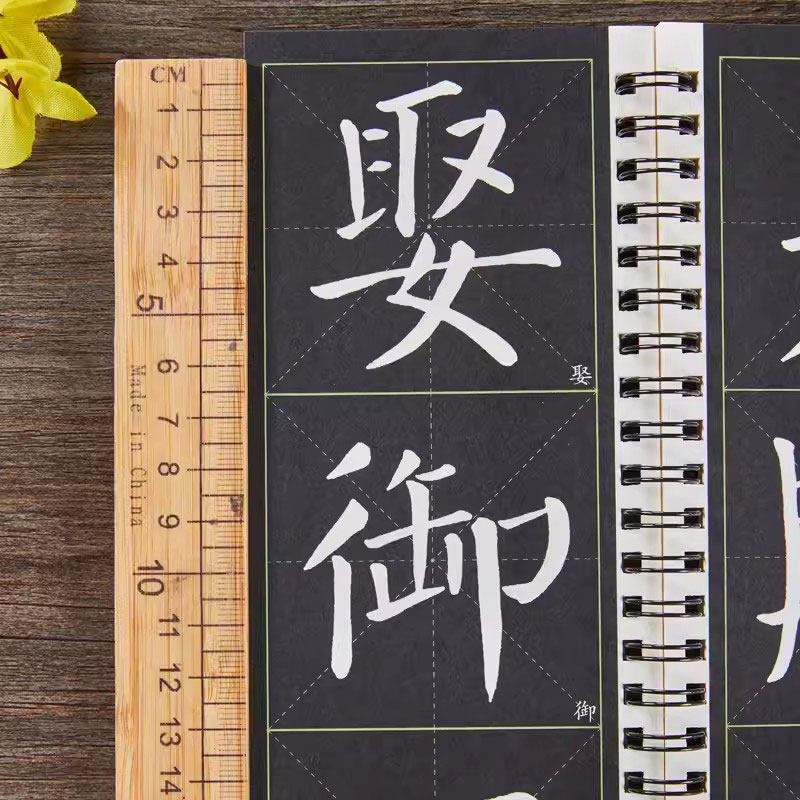 CM
1
2
3
4
5
6
7
8
9
10
11
12
13
14
Made in China
娶
娶
御
御